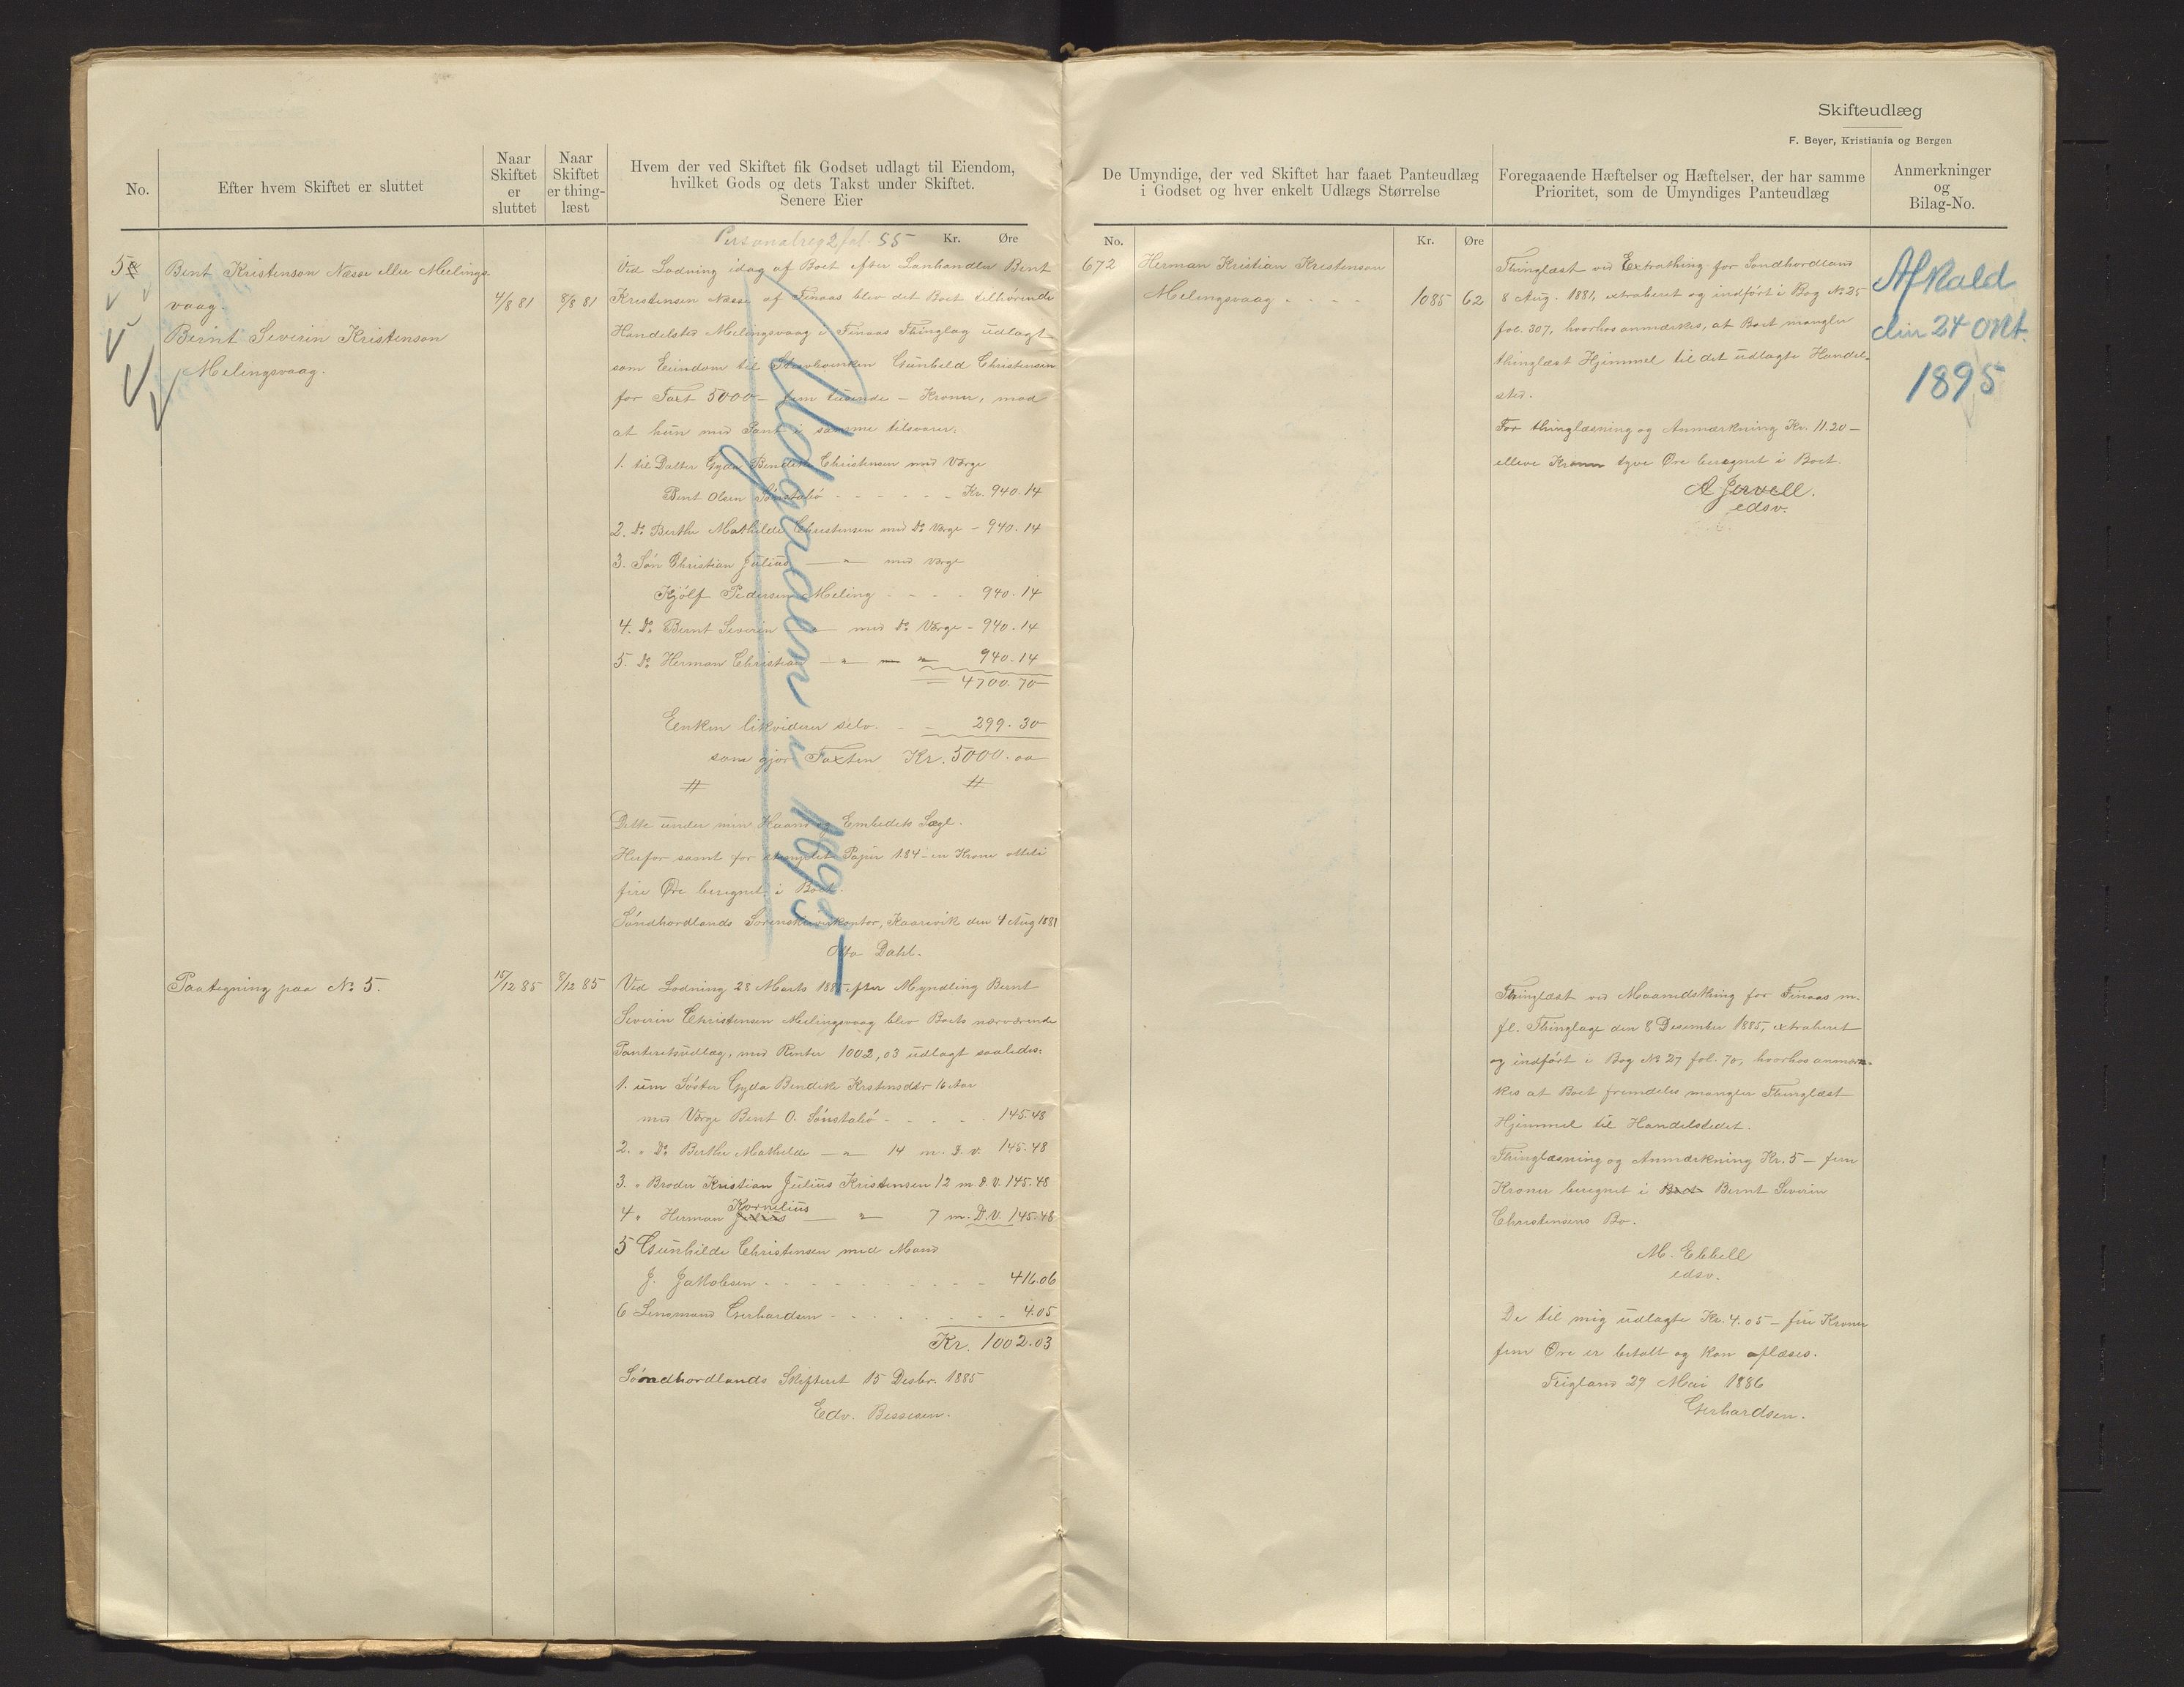 Skifteudlæg
F. Beyer, Kristiania og Bergen
No.
Efter hvem Skiftet er sluttet
Naar Skiftet er sluttet
Naar Skiftet er thing-læst
Hvem der ved Skiftet fik Godset udlagt til Eiendom,
hvilket Gods og dets Takst under Skiftet.
Senere Eier
De Umyndige, der ved Skiftet har faaet Panteudlæg
i Godset og hver enkelt Udlægs Størrelse
Foregaaende Hæftelser og Hæftelser, der har samme
Prioritet, som de Umyndiges Panteudlæg
Anmerkninger
og
Bilag-No.
Personalreg 2 fol. 55 Kr. Øre
5
Bent Kristenson Næsse eller Melings-
vaag.
Bernt Severin Kristenson
Melingsvaag.
4/8 81
8/8 81
Ved Lodning idag af Boet efter Lanhandler Bent
Kristensen Næsse af Finaas blev det Boet tilhørende
Handelsted Melingsvaag i Finaas Thinglag udlagt
som Eiendom til Gunhild Christensen
for Taxt 5000 – fem tusende – Kroner, mod
at hun med Pant i samme tilsvarer:
1. til Datter Gyda Bendikte Christensen med Værge
Bent Olsen Sønstabø - - - - - - Kr. 940.14
2. Do Berthe Mathilde Christensen med Do Værge - 940.14
3. Søn Christian Julius — " — med Værge
Kjølf Pedersen Meling - - - - 940.14
4. Do Bernt Severin — " — med Do Værge - 940.14
5. Do Herman Christian — " — " — 940.14
= 4700.70
Enken likviderer selv. - - 299.30
som gjør Taxten Kr. 5000.00
# #
Dette under min Haand og Embedets Segl.
Herfor samt for stemplet Papir 1.84 – en Krone otteti
fire Øre beregnet i Boet.
Søndhordlands Sorenskriverkontor, Kaarevik den 4 Aug 1881
Otto Dahl.
Udgaaen i 1895
Paategning paa No 5.
15/12 85
8/12 85
Ved Lodning 28 Marts 1885 efter Myndling Bernt
Severin Christensen Melingsvaag blev Boets nærværende
Panteretsudlæg, med Renter 1002,03 udlagt saaledes:
1. um Søster Gyda Bendikte Krstensdtr 16 Aar
med Værge Bent O. Sønstabø - - - - - 145.48
2. " Do Berthe Mathilde — " — 14 m. D. v. 145.48
3. " Broder Kristian Julius Kristensen 12 m. D. V. 145.48
4 " Herman Julius Kornelius — " — 7 m. D. V. 145.48
5 Gunhilde Christensen med Mand
J. Jakobsen - - - - - - - - - - 416.06
6 Lensmand Gerhardsen - - - - - - - 4.05
Kr. 1002.03
Søndhordlands Skifteret 15 Desbr. 1885
Edv. Bessesen.
No. Kr. Øre
672 Herman Kristian Kristenson
Melingsvaag - - - - 1085 62
Thinglæst ved Extrathing for Søndhordland
8 Aug. 1881, extraheret og indført i Bog No 25
fol. 307, hvorhos anmærkes, at Boet mangler
thinglæst Hjemmel til det udlagte Handel-
sted.
For thinglæsning og Anmærkning Kr. 11.20 –
elleve Kroner tyve Øre beregnet i Boet.
A Jervell.
edsv.
Afkald
din 24 Okt.
1895
Thinglæst ved Maanedsthing for Finaas m.
fl. Thinglage den 8 Desember 1885, extraheret
og indført i Bog No 27 fol. 70, hvorhos anmær-
kes at Boet fremdeles mangler Thinglæst
Hjemmel til Handelstedet.
Thinglæsning og Anmærkning Kr. 5 – fem
Kroner beregnet i Boet Bernt Severin
Christensens Bo.
M. Ebbell
edsv.
De til mig udlagte Kr. 4.05 – fire Kroner
fem Øre er betalt og kan aflæses.
Teigland 29 Mai 1886
Gerhardsen.